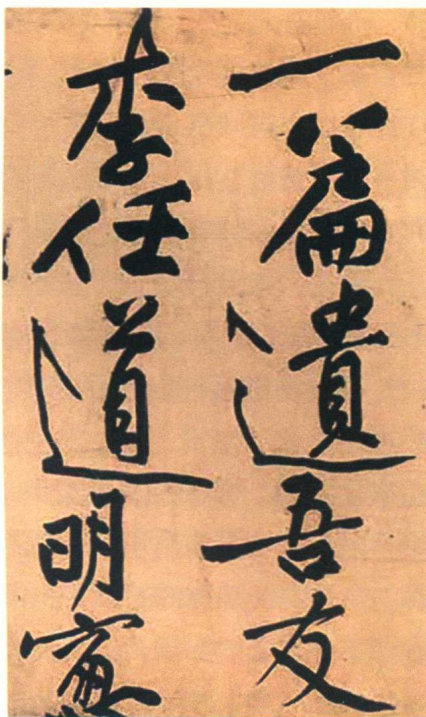 一篇遺吾友
李任道明